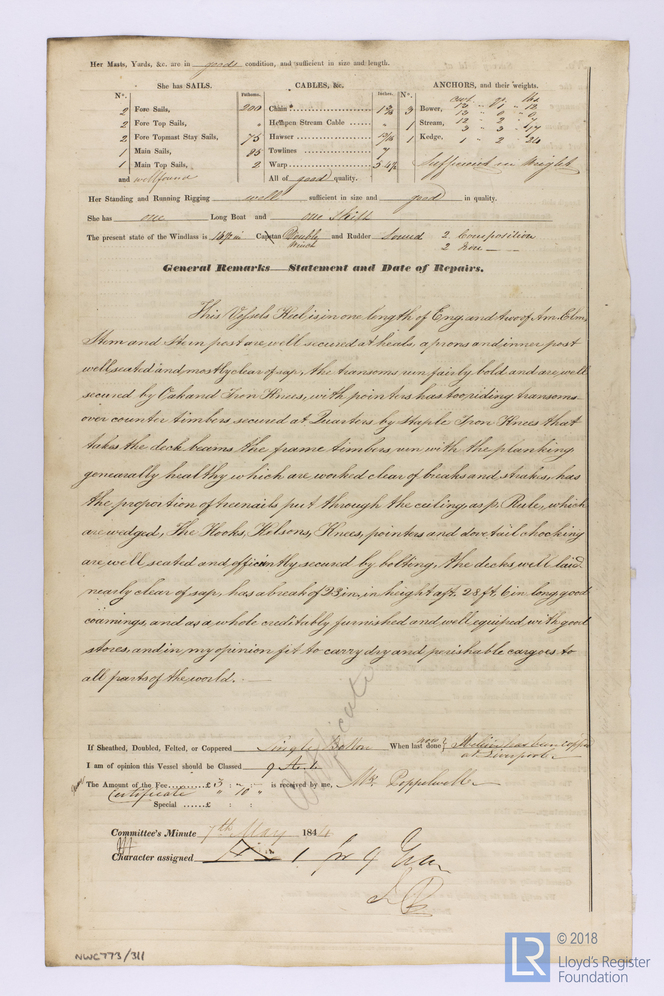 Her Masts, Yards, &c. are in good condition, and sufficient in size and length.
She has SAILS. CABLES, &c. ANCHORS, and their weights.
N°. Fathoms. Inches. N°. Cwt qr lbs
2 Fore Sails, Chain 200 1 3 Bower,
2 Fore Top Sails, Hempen Stream Cable 1 Stream,
2 Fore Topmast Stay Sails, Hawser 75 1 Kedge, 1 " 2 " 24
1 Main Sails, Towlines 85 7
1 Main Top Sails, Warp 2
and well found All of good quality. Sufficient in weight
Her Standing and Running Rigging well sufficient in size and good in quality.
She has one Long Boat and one Skiff
The present state of the Windlass is Capstan Double Winch and Rudder Sound 2 Composition
2 Iron
General Remarks—Statement and Date of Repairs.
This Vessels Keel is in one length of Eng. and two of Am. Elm,
Stem and Stern post are well secured at heals aprons and inner post
well seated and mostly clear of sap, the transoms run fairly bold and are well
secured by Oak and Iron Knees, with pointers has two riding transoms
over counter timbers secured at Quarters by Staple Iron Knees that
takes the deck beams the frame timbers run with the planking
genearally healthy which are worked clear of breaks and strakes, has
the proportion of treenails put through the ceiling as pr Rule, which
are wedged, The Hooks, Kelsons, Knees, pointers and dovetail chocking
are well seated and efficiently secured by bolting, the decks well laid
nearly clear of sap, has a break of 23 in. in height aft. 28 ft. 6 in. long good
coamings, and as a whole creditably furnished and well equiped, with good
stores, and in my opinion fit to carry dry and perishable cargoes to
all parts of the world.
Certificate
If Sheathed, Doubled, Felted, or Coppered Single Bottom When last done now
at Liverpool
I am of opinion this Vessel should be Classed 9 A 1
The Amount of the Fee £ 3 : - : - is received by me, Mr Poppelwell
Certificate " 10 "
Special £ : :
Committee's Minute 7th May 1844
Character assigned A 1 for 9 Years
NWC773/311
LR
© 2018
Lloyd's Register
Foundation